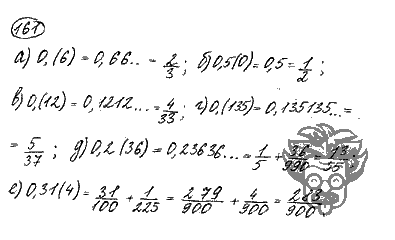 161
а) 0,(6) = 0,66.. = 2/3 ; б) 0,5(0) = 0,5 = 1/2 ;
в) 0,(12) = 0,1212... = 4/33 ; г) 0,(135) = 0,135135... =
= 5/37 ; д) 0,2(36) = 0,23636... = 1/5 + 36/990 = 13/55 ;
е) 0,31(4) = 31/100 + 1/225 = 279/900 + 4/900 = 283/900 .